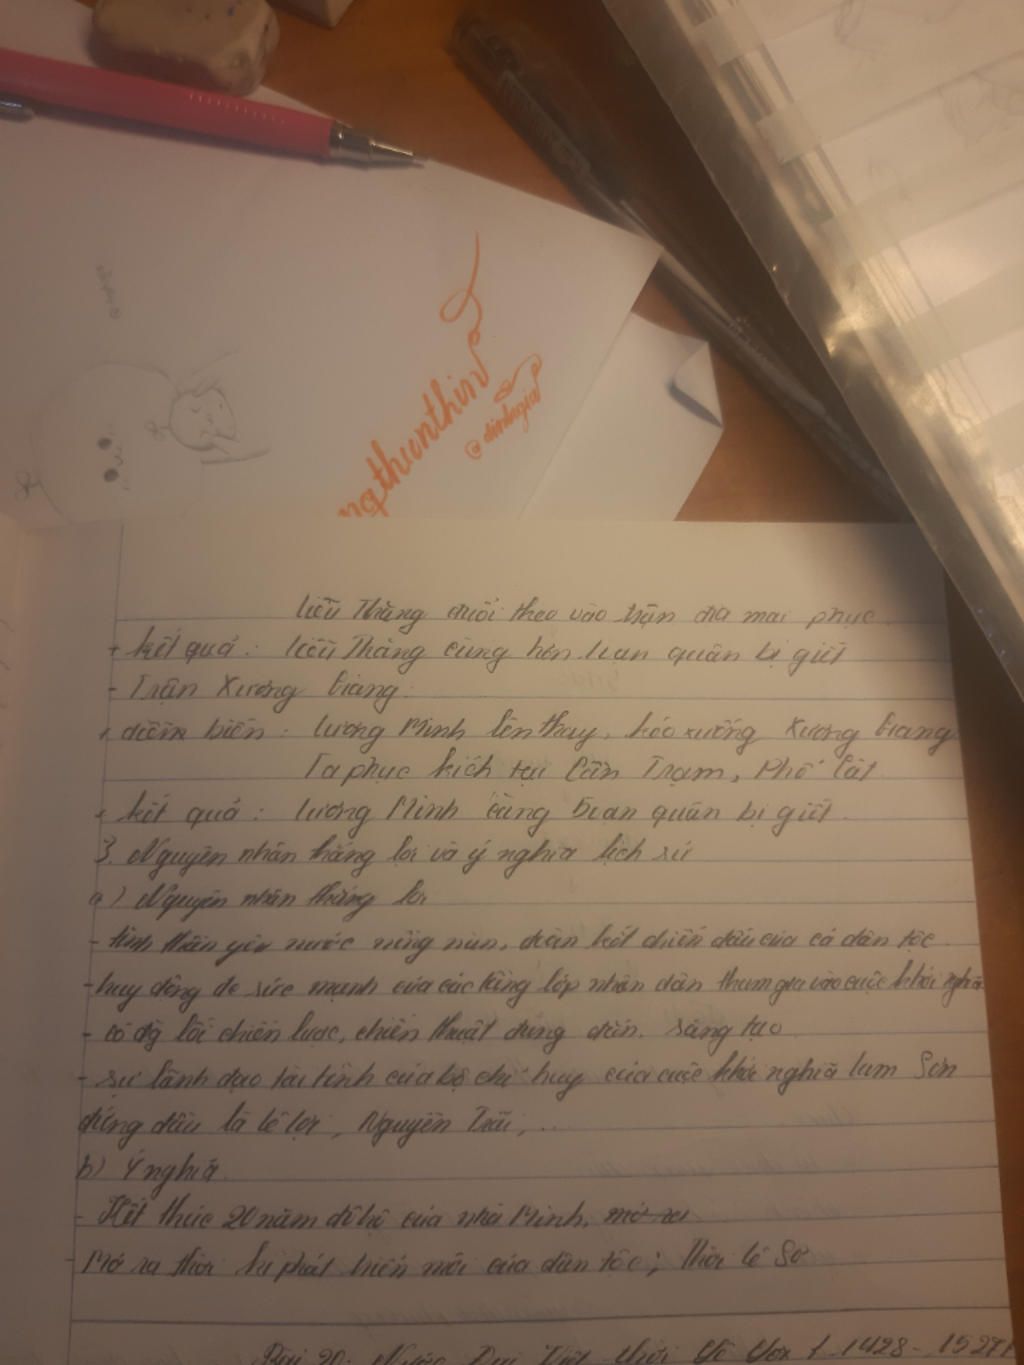 ngthunthin
@dinhngia
Liễu Thăng đuổi theo vào trận địa mai phục.
+ kết quả: Liễu Thăng cùng hơn vạn quân bị giết
- Trận Xương Giang:
+ diễn biến: Lương Minh lên thay, kéo xuống Xương Giang
Ta phục kích tại Cần Trạm, Phố Cát
+ kết quả: Lương Minh cùng 3 vạn quân bị giết.
3. Nguyên nhân thắng lợi và ý nghĩa lịch sử
a) Nguyên nhân thắng lợi
- tinh thần yêu nước nồng nàn, đoàn kết chiến đấu của cả dân tộc
- huy động đc sức mạnh của các tầng lớp nhân dân tham gia vào cuộc khởi nghĩa
- có đg lối chiến lược, chiến thuật đúng đắn, sáng tạo
- sự lãnh đạo tài tình của bộ chỉ huy của cuộc khởi nghĩa Lam Sơn
đứng đầu là Lê Lợi, Nguyễn Trãi,...
b) Ý nghĩa
- Kết thúc 20 năm đô hộ của nhà Minh,
- Mở ra thời kì phát triển mới của dân tộc; thời Lê Sơ
Bài 20: Nước Đại Việt thời Lê Sơ (1428-1527)